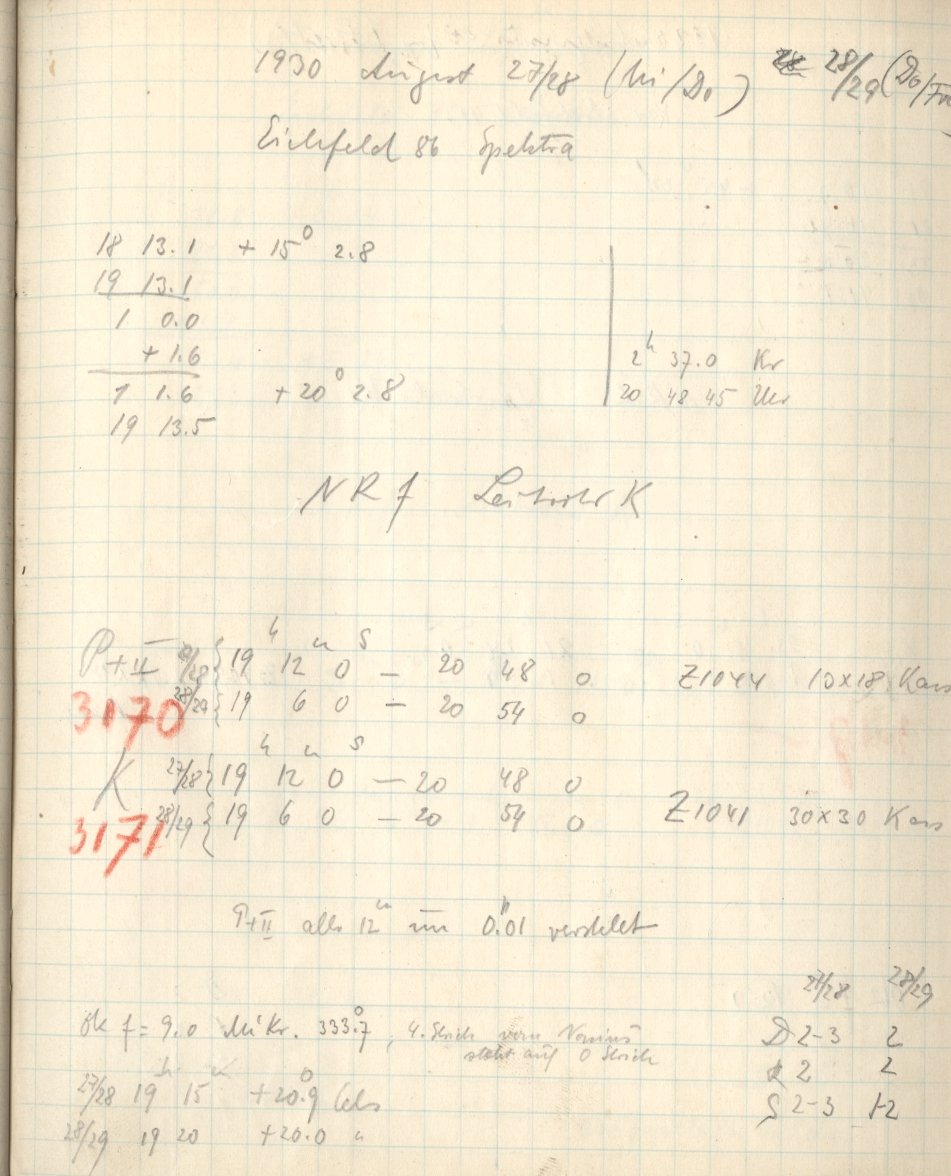 1930 August 27/28 (Mi/Do) 28/29 (Do/Fr
Eichfeld 86 Spektra
18 13.1 + 15° 2.8
19 13.1
1 0.0
+ 1.6
1 1.6 + 20° 2.8
19 13.5
2h 37.0 Kr
20 48 45 Uhr
NR f Leitrohr K
P+II 27/28 { 19h 12m 0s — 20 48 0 Z1044 13x18 Kass
3170 28/29 { 19 6 0 — 20 54 0
K 27/28 { 19h 12m 0s — 20 48 0
3171 28/29 { 19 6 0 — 20 54 0 Z1041 30x30 Kass
P+II alle 12m um 0.01 verstellt
27/28 28/29
Ok f = 9.0 Mi Kr. 333°.7, 4. Strich vom Nonius
steht auf 0 Strich
D 2-3 2
R 2 2
S 2-3 1-2
27/28 19h 15m +20°.9 Cels
28/29 19 20 +20.0 "